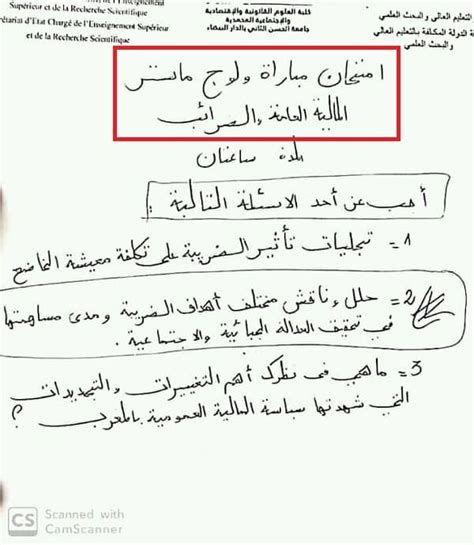 Supérieur et de la Recherche Scientifique
Secrétariat d'Etat Chargé de l'Enseignement Supérieur
et de la Recherche Scientifique
كلية العلوم القانونية والاقتصادية
والاجتماعية المحمدية
جامعة الحسن الثاني بالدار البيضاء
التعليم العالي والبحث العلمي
الدولة المكلفة بالتعليم العالي
والبحث العلمي
امتحان مباراة ولوج ماستر
المالية العامة والضرائب
لمدة ساعتان
أجب عن أحد الاسئلة التالية :
1= تجليات تأثير الضريبة على تكلفة معيشة الخاضع
2= حلل وناقش مختلف أهداف الضريبة ومدى مساهمتها
في تحقيق العدالة الجبائية والاجتماعية .
3= ماهي في نظرك أهم التغييرات والتجديدات
التي شهدتها سياسة المالية العمومية بالمغرب ؟
CS Scanned with
CamScanner